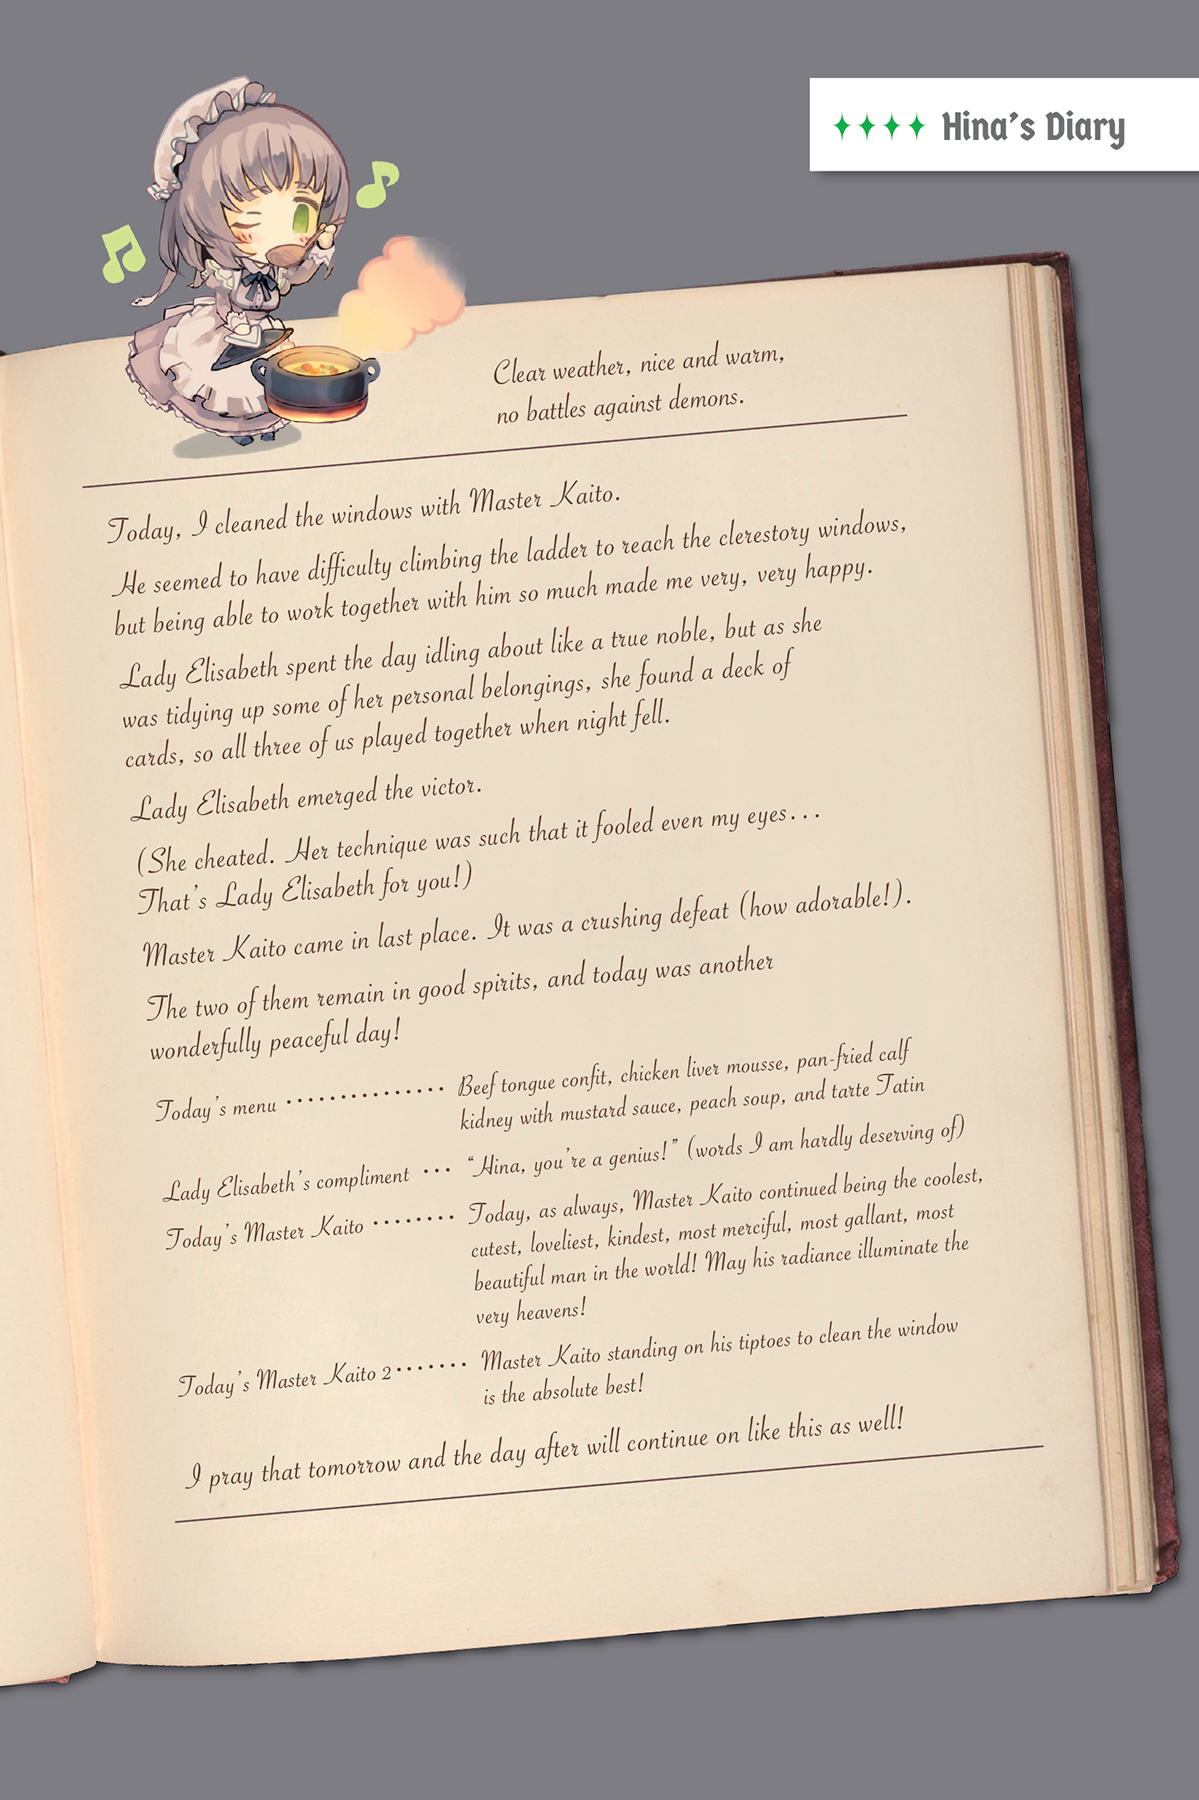 Hina's Diary
Clear weather, nice and warm,
no battles against demons.
Today, I cleaned the windows with Master Kaito.
He seemed to have difficulty climbing the ladder to reach the clerestory windows,
but being able to work together with him so much made me very, very happy.
Lady Elisabeth spent the day idling about like a true noble, but as she
was tidying up some of her personal belongings, she found a deck of
cards, so all three of us played together when night fell.
Lady Elisabeth emerged the victor.
(She cheated. Her technique was such that it fooled even my eyes...
That's Lady Elisabeth for you!)
Master Kaito came in last place. It was a crushing defeat (how adorable!).
The two of them remain in good spirits, and today was another
wonderfully peaceful day!
Today's menu ··············· Beef tongue confit, chicken liver mousse, pan-fried calf
kidney with mustard sauce, peach soup, and tarte Tatin
Lady Elisabeth's compliment ··· "Hina, you're a genius!" (words I am hardly deserving of)
Today's Master Kaito ········ Today, as always, Master Kaito continued being the coolest,
cutest, loveliest, kindest, most merciful, most gallant, most
beautiful man in the world! May his radiance illuminate the
very heavens!
Today's Master Kaito 2 ······· Master Kaito standing on his tiptoes to clean the window
is the absolute best!
I pray that tomorrow and the day after will continue on like this as well!